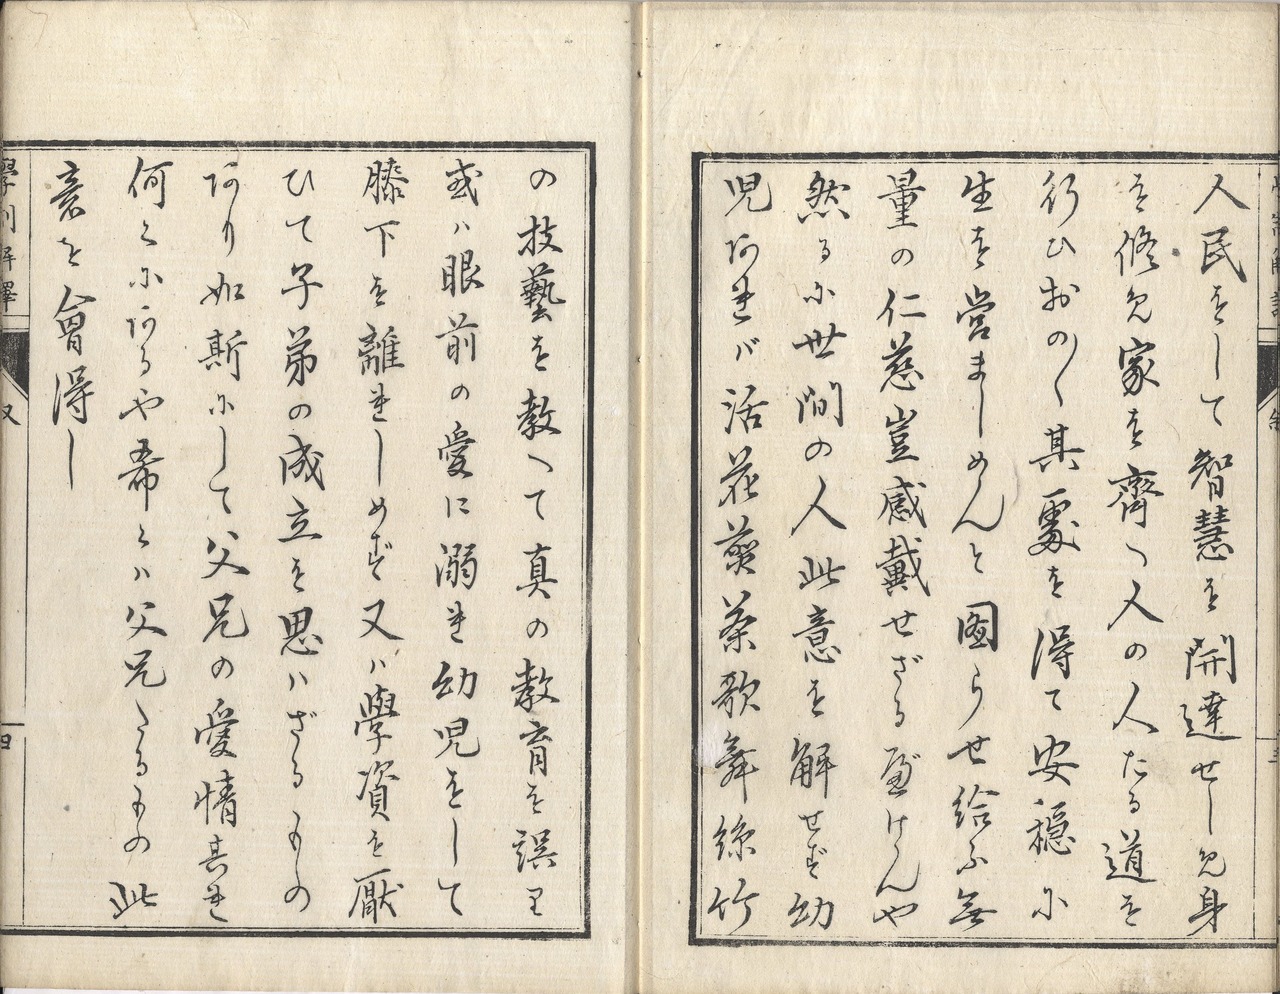 人民をして智慧を開達せしめ身
を修め家を齊へ人の人たる道を
行ひおの〱其處を得て安穏に
生を営ましめんと図らせ給ふ無
量の仁慈豈感戴せざるべけんや
然るに世間の人此意を解せず幼
児あれバ活花煎茶歌舞絲竹
の技藝を教へて真の教育を誤り
或ハ眼前の愛に溺れ幼児をして
膝下を離れしめず又ハ學資を厭
ひて子弟の成立を思ハざるもの
あり如斯にして父兄の愛情其れ
何くにあるや希くハ父兄たるもの此
意を會得し
學制解譯
四